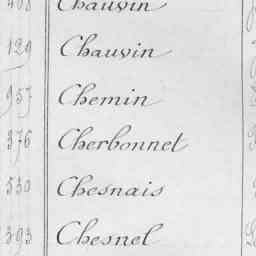 408 Chauvin
129 Chauvin
957 Chemin
376 Cherbonnet
530 Chesnais
393 Chesnel